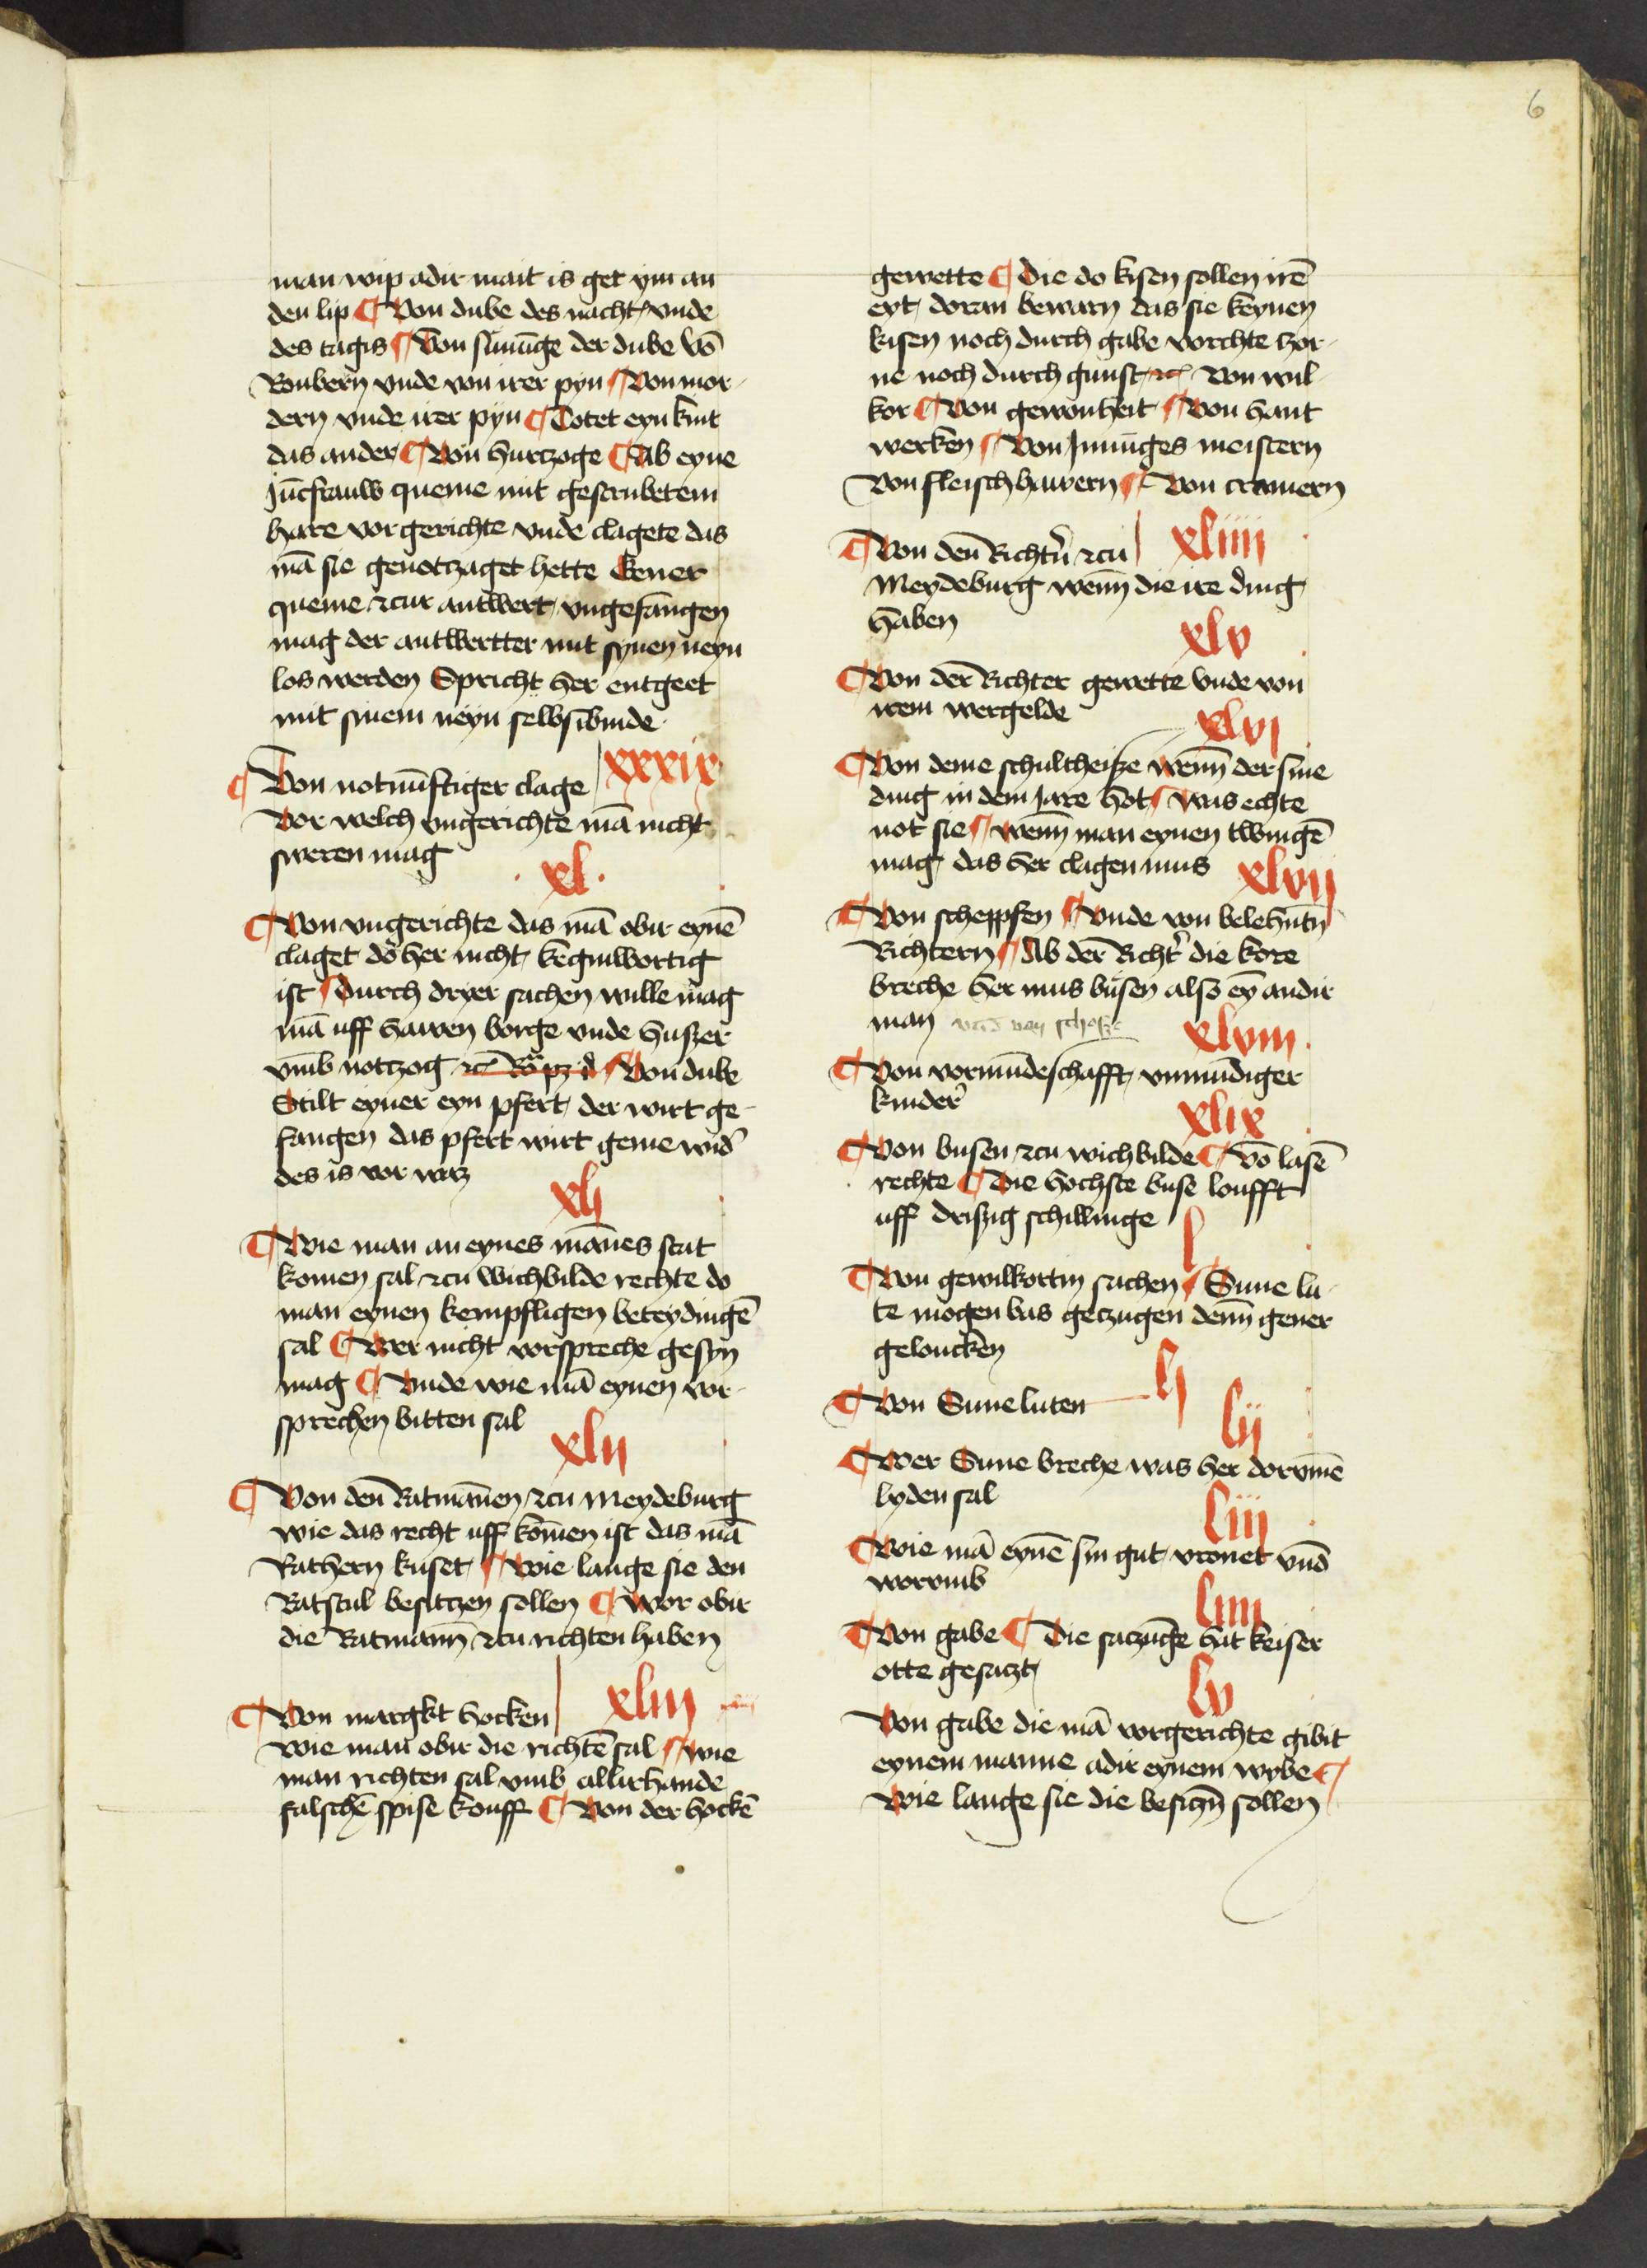 6
man wip adir mait is get ym an
den lip ¶ Von dube des nacht vnde
des tagis ¶ Von sūnūge der dube Vō
Roubern vnde von irer pyn ¶ Von mor-
dern vnde irer pyn ¶ Totet eyn kint
das ander ¶ Von hurczoge ¶ Ab eyne
Jūcfrauw queme mit gestrubetem
hare vor gerichte vnde clagete das
mā sie genotczaget hette Gener
queme czur antwert vngefangen
mag der antwertter mit synen neyn
los werden Spricht her entgeet
mit sinem neyn selbsibinde
xxxix
¶ Von notnūftiger clage
Vor welch vngerichte mā nicht
sweren mag
xl
¶ Von vngerichte das mā obir eynē
claget do her nicht keginwortig
ist ¶ durch dryer sachen wille mag
mā uff hawen borge vnde huszer
vmb notzog ¶ Von dube
Stilt eyner eyn pfert der wirt ge-
fangen das pfert wirt geme wid̄
des is vor waz
xlj
¶ Wie man an eynes mānes stat
komen sal czu wichbilde rechte do
man eynen kempfligen beteydingē
sal ¶ Wer nicht vorspreche gesyn
mag ¶ Vnde wie mā eynen vor-
sprechen bitten sal
xlij
¶ Von den Ratmānen czu Meydeburg
wie das recht uff komen ist das mā
Rathern kuset ¶ Wie lange sie den
Ratstul besitczen sollen ¶ Wor obir
die Ratmann czu richten haben
xliij
¶ Von margkt hocken
Wie man obir die richtē sal ¶ Wie
man richten sal vmb allirhande
falschē spise kouff ¶ Von der hockē
gewette ¶ Die do kisen sollen irē
eyt doran bewarn das sie keynen
kisen noch durch gabe vorchte zor-
ne noch durch gunst Von wil-
kor ¶ Von gewonheit ¶ Von hant
werken ¶ Von Jnnūges meistern
Von fleischhauwern ¶ Von cramern
xliiij
¶ Von den Richtn̄ czu
Meydeburg wenn die ire ding
haben
xlv
¶ Von der Richter gewette Vnde von
irem wergelde
xlvj
¶ Von deme schultheisze wenn der sine
ding in dem Jare hot ¶ Was echte
not sie ¶ Wenn man eynen twingē
mag das her clagen mus
xlvij
¶ Von scheppfen ¶ Vnde von belehntn̄
Richtern ¶ Ab der Richt̄ die kore
breche her mus busen also ey andir
man
xlviij
¶ Von vormūdeschafft vnmūdiger
kinder
xlix
¶ Von busen czu wichbilde ¶ Vō lasē
rechte ¶ Die hochste buse loufft
uff driszig schillinge
l
¶ Von gewilkortin sachen ¶ Sune lu-
te mogen bas geczugen denn gener
geloucken
lj
¶ Von Suneluten
lij
¶ Wer Sune breche was her dorvmē
lyden sal
liij
¶ Wie mā eynē sin gut vronet vnd̄
worvmb
liiij
¶ Von gabe ¶ Die saczūge hat keiser
otte gesaczt
lv
Von gabe die mā vor gerichte gibit
eynem manne adir eynem wybe ¶
Wie lange sie die besiczn̄ sollen